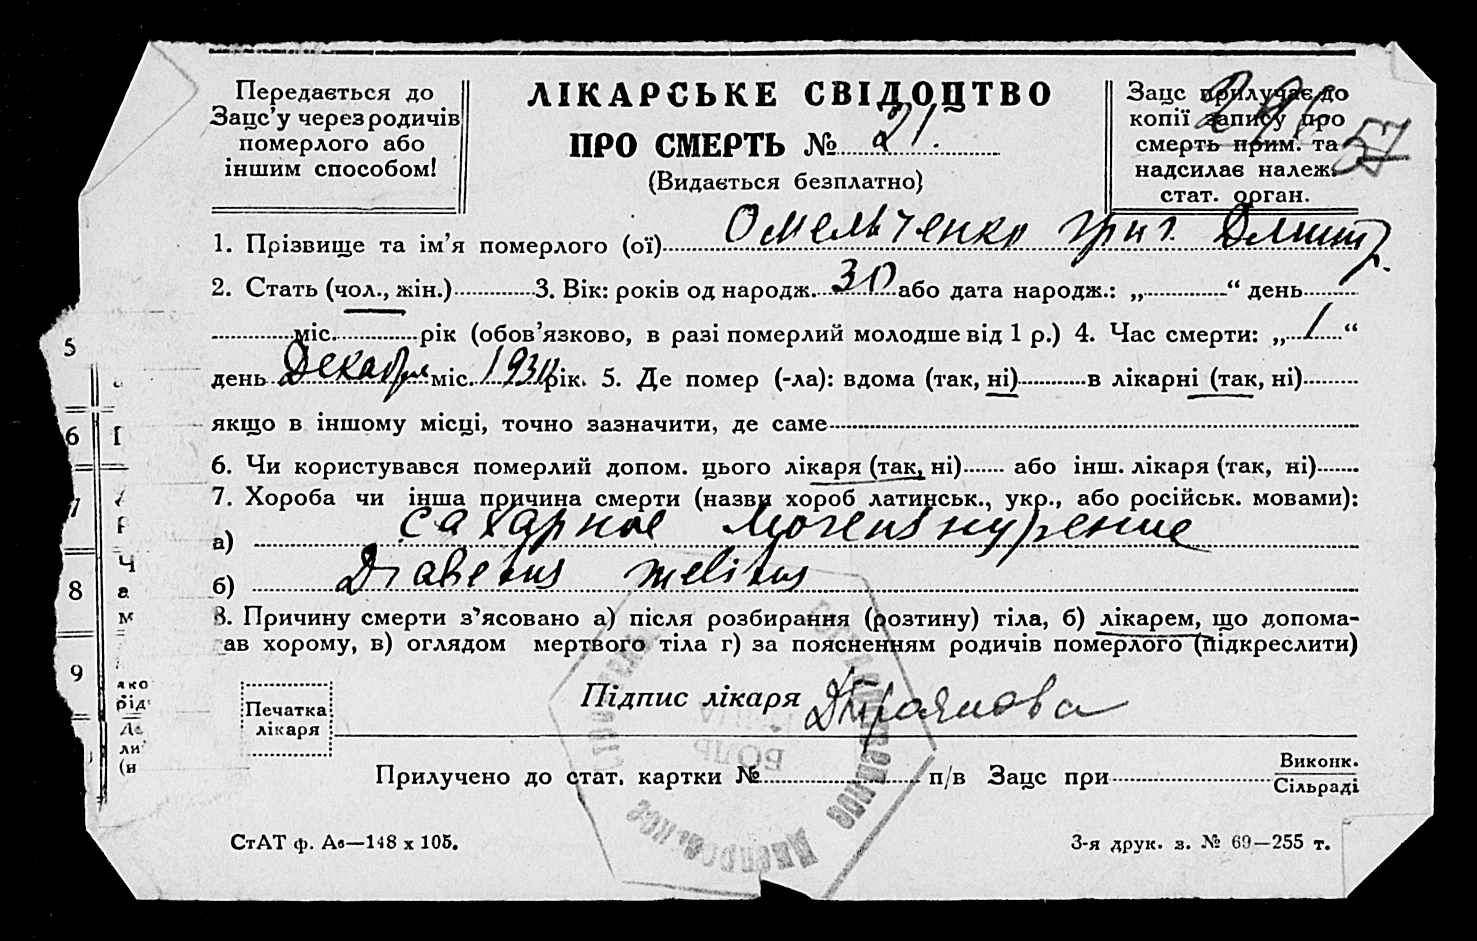 Передається до
Заџс'у через родичів
померлого або
іншим способом!
ЛІКАРСЬКЕ СВІДОЏТВО
ПРО СМЕРТЬ № 21.
(Видається безплатно)
Заџс прилучає до
копії запису про
смерть прим. та
надсилає належ.
стат. орган.
57
1. Прізвище та ім'я померлого (ої) Омельченко Григ. Дмитр.
2. Стать (чол., жін.) 3. Вік: років од народж. 30 або дата народж.: „ “ день
міс. рік (обов'язково, в разі померлий молодше від 1 р.) 4. Час смерти: „ 1 “
день Декабря міс. 193 рік. 5. Де помер (-ла): вдома (так, ні) в лікарні (так, ні)
якщо в іншому місці, точно зазначити, де саме
6. Чи користувався померлий допом. цього лікаря (так, ні) або інш. лікаря (так, ні)
7. Хороба чи інша причина смерти (назви хороб латинськ., укр., або російськ. мовами):
а) сахарное мочеизнурение
б) Diabetus melitus
8. Причину смерти з'ясовано а) після розбирання (розтину) тіла, б) лікарем, що допома-
ав хорому, в) оглядом мертвого тіла г) за поясненням родичів померлого (підкреслити)
Печатка
лікаря
Підпис лікаря
Прилучено до стат. картки № п/в Заџс при Виконк.
Сільраді
СтАТ ф. Ав—148 x 105.
3-я друк. з. № 69—255 т.
5
6
7
8
9
Ч
а
м
яко
рід
ли
(н